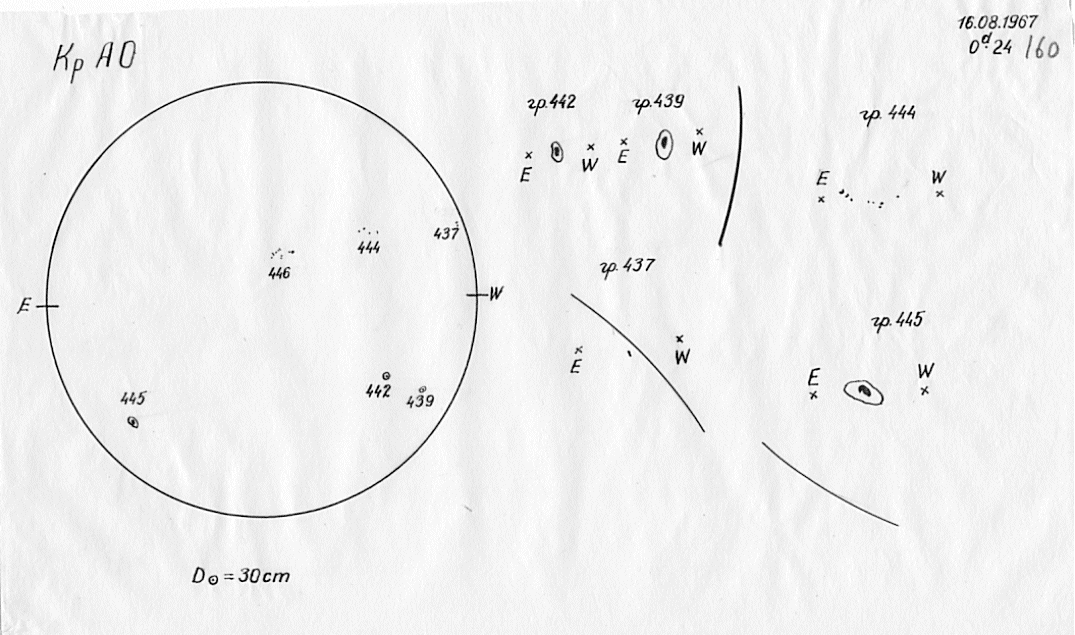 Кр АО
16.08.1967
0ᵈ.24 160
гр.442
гр.439
E
W
E
W
гр.444
E
W
437
444
446
E
W
гр.437
E
W
гр.445
E
W
445
442
439
D⊙ = 30cm